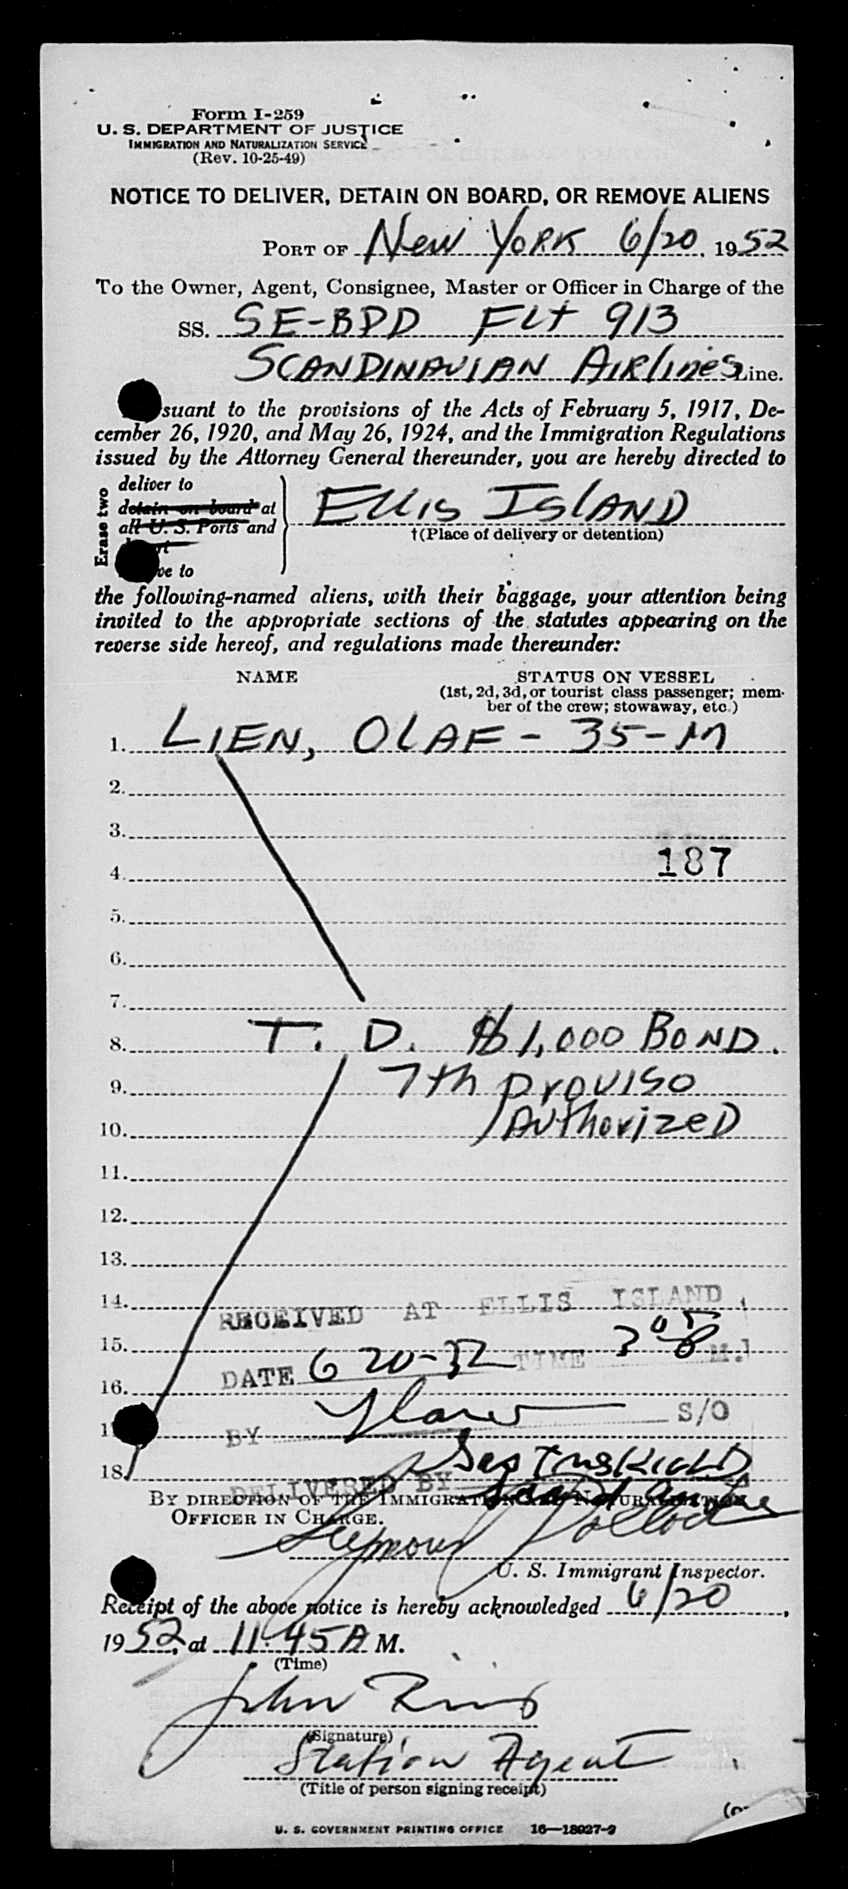 Form I-259
U. S. DEPARTMENT OF JUSTICE
IMMIGRATION AND NATURALIZATION SERVICE
(Rev. 10-25-49)
NOTICE TO DELIVER, DETAIN ON BOARD, OR REMOVE ALIENS
PORT OF New York 6/20, 1952
To the Owner, Agent, Consignee, Master or Officer in Charge of the
SS. SE-BDD FLt 913
SCANDINAVIAN AIRlines Line.
suant to the provisions of the Acts of February 5, 1917, De-
cember 26, 1920, and May 26, 1924, and the Immigration Regulations
issued by the Attorney General thereunder, you are hereby directed to
Erase two
deliver to
detain on board at
all U. S. Ports and
ve to
ELLIS ISLAND
†(Place of delivery or detention)
the following-named aliens, with their baggage, your attention being
invited to the appropriate sections of the statutes appearing on the
reverse side hereof, and regulations made thereunder:
NAME STATUS ON VESSEL
(1st, 2d, 3d, or tourist class passenger; mem-
ber of the crew; stowaway, etc.)
1. LIEN, OLAF - 35 - M
2.
3.
187
4.
5.
6.
7.
8. T. D. $1,000 BOND.
9. 7th proviso
10. Authorized
11.
12.
13.
14. RECEIVED AT ELLIS ISLAND
15.
DATE 6 20-52 TIME M.
16.
BY S/O
18.
DELIVERED BY
BY DIRECTION OF THE IMMIGRATION AND NATURALIZATION
OFFICER IN CHARGE.
Seymour Pollock
U. S. Immigrant Inspector.
Receipt of the above notice is hereby acknowledged 6/20,
1952, at 11:45 A M.
(Time)
John
(Signature)
Station Agent
(Title of person signing receipt)
U. S. GOVERNMENT PRINTING OFFICE 16—18027-2